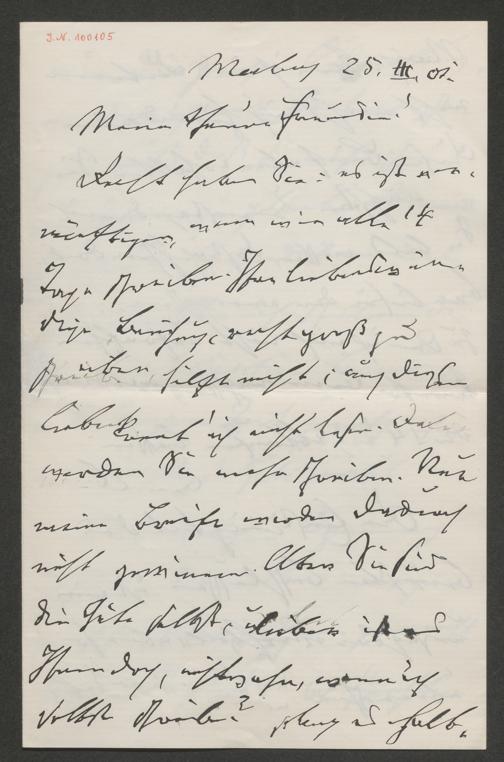 J.N. 100105
Marburg 25. III. 01.
Meine theure Freundin!
Recht haben Sie: es ist ver-
nünftiger, wenn wir alle 14
Tage schreiben. Ihre liebenswür-
dige Bemühung, recht groß zu
schreiben, hilft nicht; auch diesen
lieben konnt' ich nicht lesen. Dafür
werden Sie mehr schreiben. Nur
meine Briefe werden dadurch
nicht gewinnen. Aber Sie sind
die Güte selbst, lieber ist es
Ihnen doch, nicht wahr, wenn ich
selbst schreibe? halb-